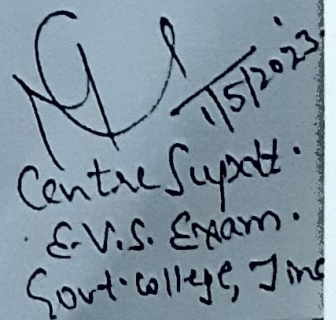 1/5/2023
Centre Supdtt.
E.V.S. Exam.
Govt. College, Jind